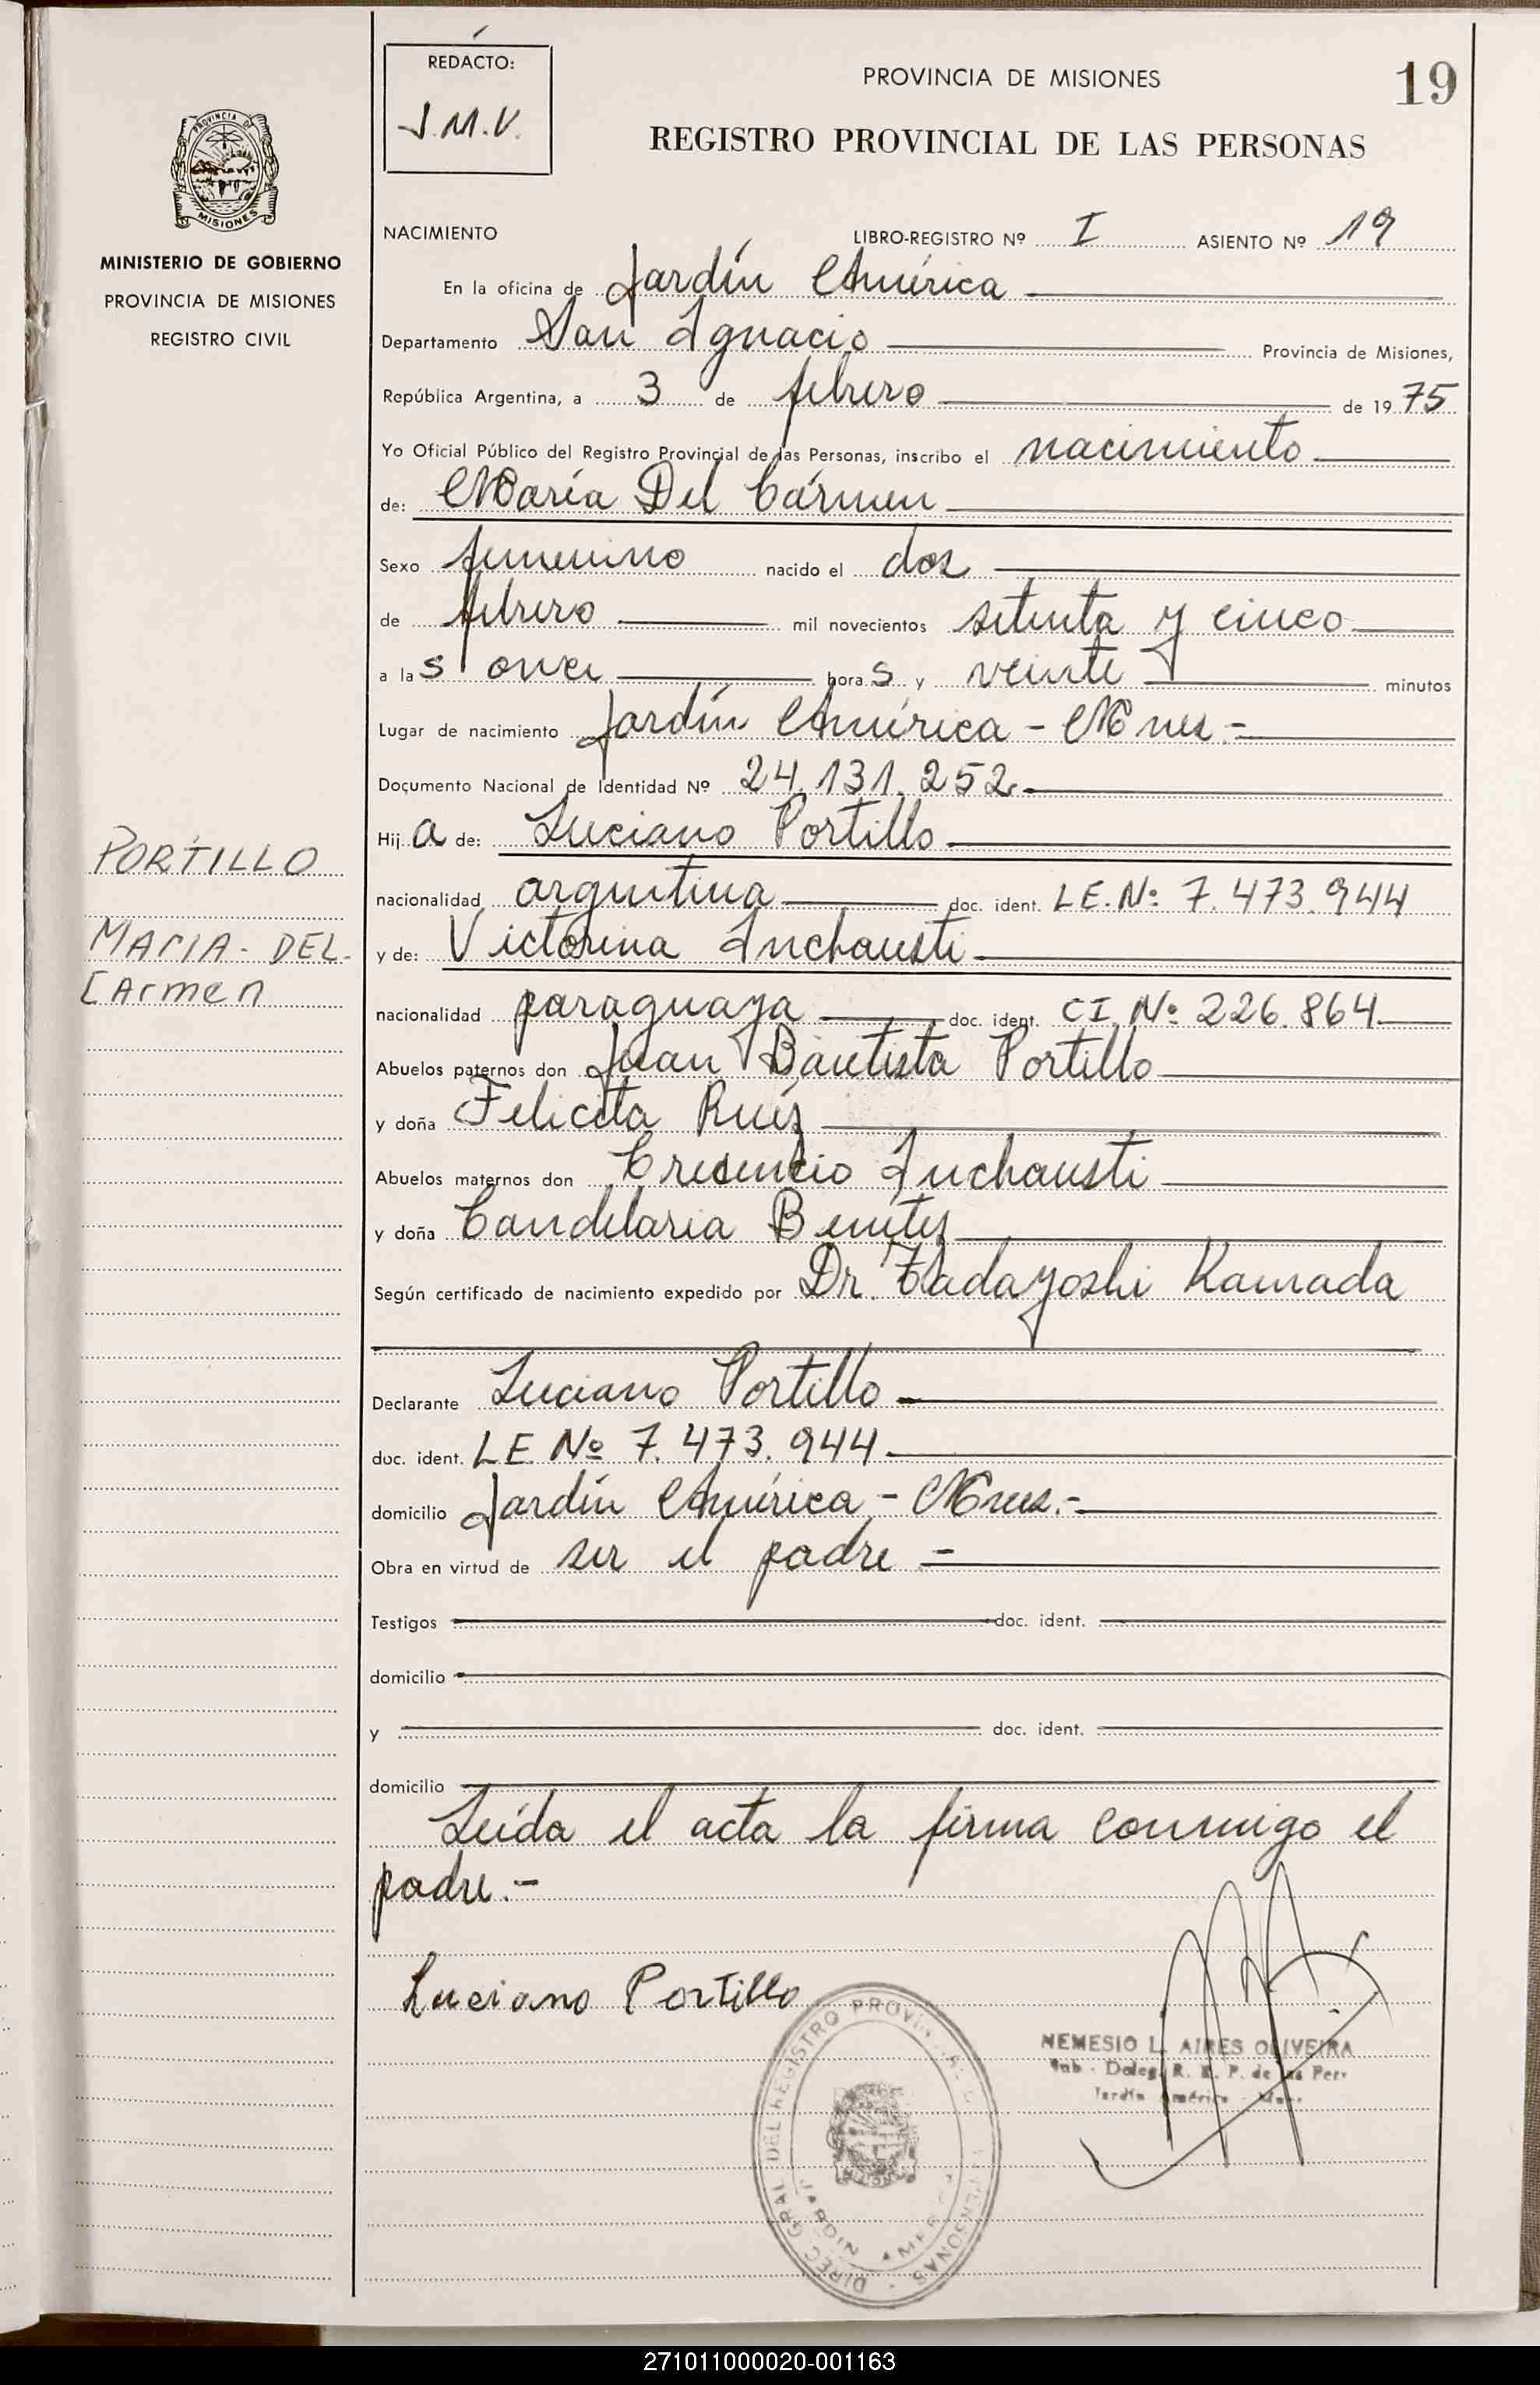 REDACTO:
J.M.V.
PROVINCIA DE MISIONES
19
REGISTRO PROVINCIAL DE LAS PERSONAS
PROVINCIA DE
MISIONES
MINISTERIO DE GOBIERNO
PROVINCIA DE MISIONES
REGISTRO CIVIL
NACIMIENTO LIBRO-REGISTRO Nº I ASIENTO Nº 19
En la oficina de Jardín América
Departamento San Ignacio Provincia de Misiones,
República Argentina, a 3 de febrero de 1975
Yo Oficial Público del Registro Provincial de las Personas, inscribo el nacimiento
de: María Del Cármen
Sexo femenino nacido el dos
de febrero mil novecientos setenta y cinco
a las once horas y veinte minutos
Lugar de nacimiento Jardín América - Mnes.-
Documento Nacional de Identidad Nº 24.131.252.
Hija de: Luciano Portillo
nacionalidad argentina doc. ident. LE.Nº 7.473.944
y de: Victorina Inchausti
nacionalidad paraguaya doc. ident. CI.Nº 226.864
Abuelos paternos don Juan Bautista Portillo
y doña Felicita Ruíz
Abuelos maternos don Cresencio Inchausti
y doña Candelaria Benítez
Según certificado de nacimiento expedido por Dr. Tadayoshi Kamada
Declarante Luciano Portillo
doc. ident. LE. Nº 7.473.944.
domicilio Jardín América - Mnes.-
Obra en virtud de ser el padre -
Testigos doc. ident.
domicilio
y doc. ident.
domicilio
Leída el acta la firma conmigo el
padre.-
Luciano Portillo
PORTILLO
MARIA - DEL-
CArmen
NEMESIO L. AIRES OLIVEIRA
Sub - Deleg. R. P. de las Per.
Jardín América - Mnes.
DIREC. GRAL. DEL REGISTRO PROVINCIAL DE LAS PERSONAS
JARDIN AMERICA
271011000020-001163